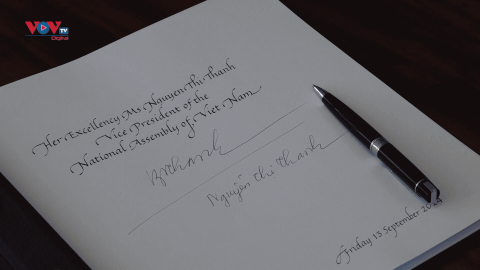 VOVTV
Digital
Her Excellency Ms. Nguyen Thi Thanh
Vice President of the
National Assembly of Viet Nam
Nguyễn thi thanh
Friday 13 September